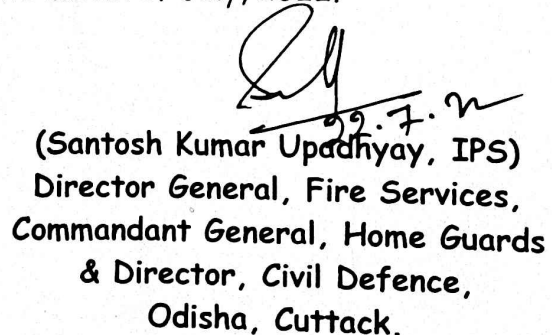 22.7.22
(Santosh Kumar Upadhyay, IPS)
Director General, Fire Services,
Commandant General, Home Guards
& Director, Civil Defence,
Odisha, Cuttack.